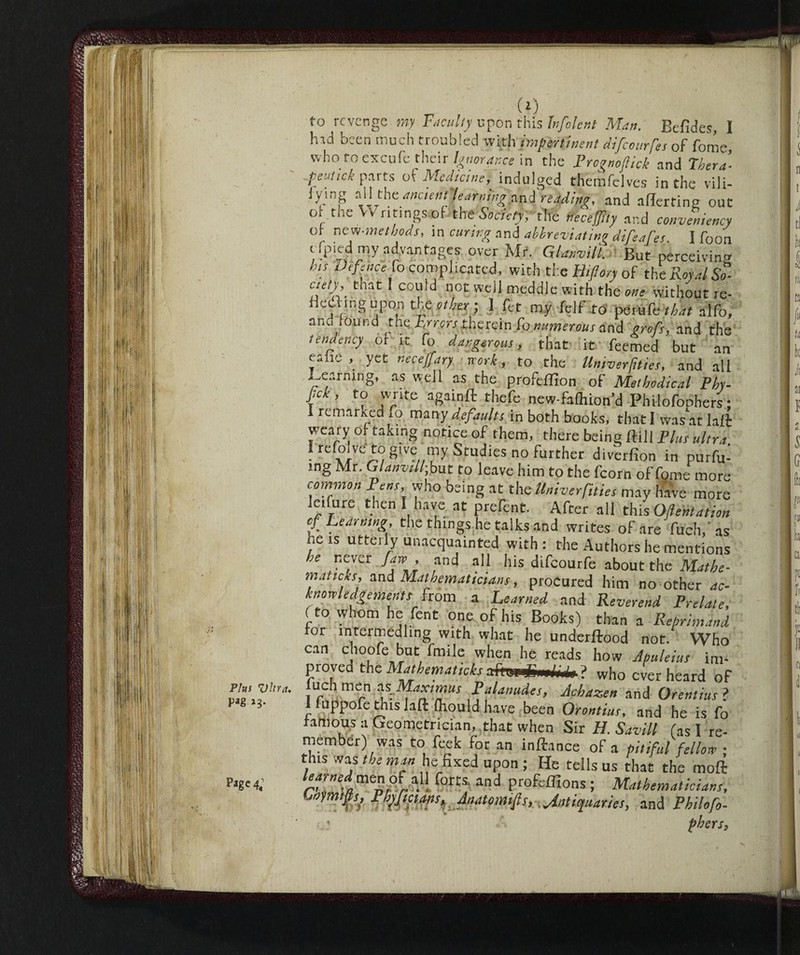 (2)
to revenge my Faculty upon this Inſolent Man. Beſides, I
had been much troubled with impertinent diſcourſes of ſome,
who to excuſe their Ignorance in the Prognoſtick and Thera-
peutick parts of Medicine, indulged themſelves in the vili-
fying all the ancient learning and reading, and aſſerting out
of the Writings of the Society, the neceſſity and conveniency
of new-methods, in curing and abbreviating diſeaſes. I ſoon
eſpied my advantages over Mr. Glanvill. But perceiving
his Defence ſo complicated, with the Hiſtory of the Royal So-
ciety, that I could not well meddle with the one without re-
flecting upon the other; I ſet my ſelf to peruſe that alſo,
and found the Errors therein ſo numerous and groſs, and the
tendency of it ſo dangerous, that it ſeemed but an
eaſie, yet neceſſary work, to the Univerſities, and all
Learning, as well as the profeſſion of Methodical Phy-
ſick, to write againſt theſe new-faſhion'd Philoſophers;
I remarked ſo many defaults in both books, that I was at laſt
weary of taking notice of them, there being ſtill Plus ultra.
I reſolve to give my Studies no further diverſion in purſu-
ing Mr. Glanvill; but to leave him to the ſcorn of ſome more
common Pens, who being at the Univerſities may have more
leiſure then I have at preſent. After all this Oſtentation
of Learning, the things he talks and writes of are ſuch, as
he is utterly unacquainted with: the Authors he mentions
he never ſaw, and all his diſcourſe about the Mathe-
maticks, and Mathematicians, procured him no other ac-
knowledgements from a Learned and Reverend Prelate,
(to whom he ſent one of his Books) than a Reprimand
for intermedling with what he underſtood not. Who
can chooſe but ſmile when he reads how Apuleius im-
proved the Mathematicks ? who ever heard of
Plus Ultra. ſuch men as Maximus Palanudes, Achazen and Orentius?
pag 13. I ſuppoſe this laſt ſhould have been Orontius, and he is ſo
famous a Geometrician, that when Sir H. Savill (as I re-
member) was to ſeek for an inſtance of a pitiful fellow;
this was the man he fixed upon; He tells us that the moſt
Page 4, learned men of all ſorts, and profeſſions; Mathematicians,
Chymiſts, Phyſicians, Anatomiſts, Antiquaries, and Philoſo-
phers,